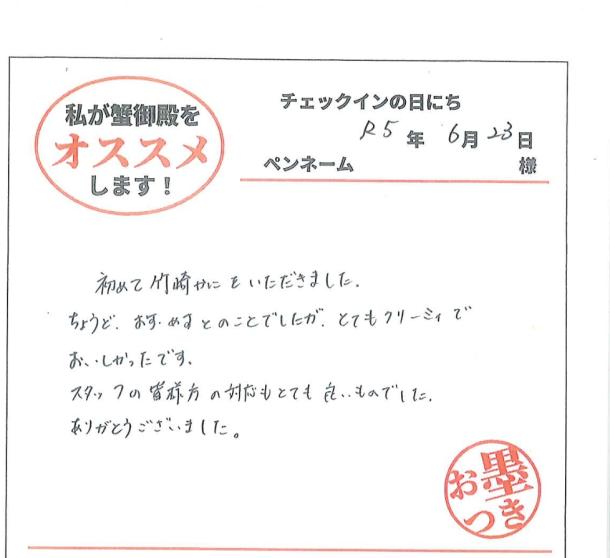 私が蟹御殿を
オススメ
します！
チェックインの日にち
R5年 6月23日
ペンネーム 様
初めて竹崎かにをいただきました。
ちょうど、おす・めすとのことでしたが、とてもクリーミィで
おいしかったです。
スタッフの皆様方の対応もとても良いものでした。
ありがとうございました。
お墨
つき